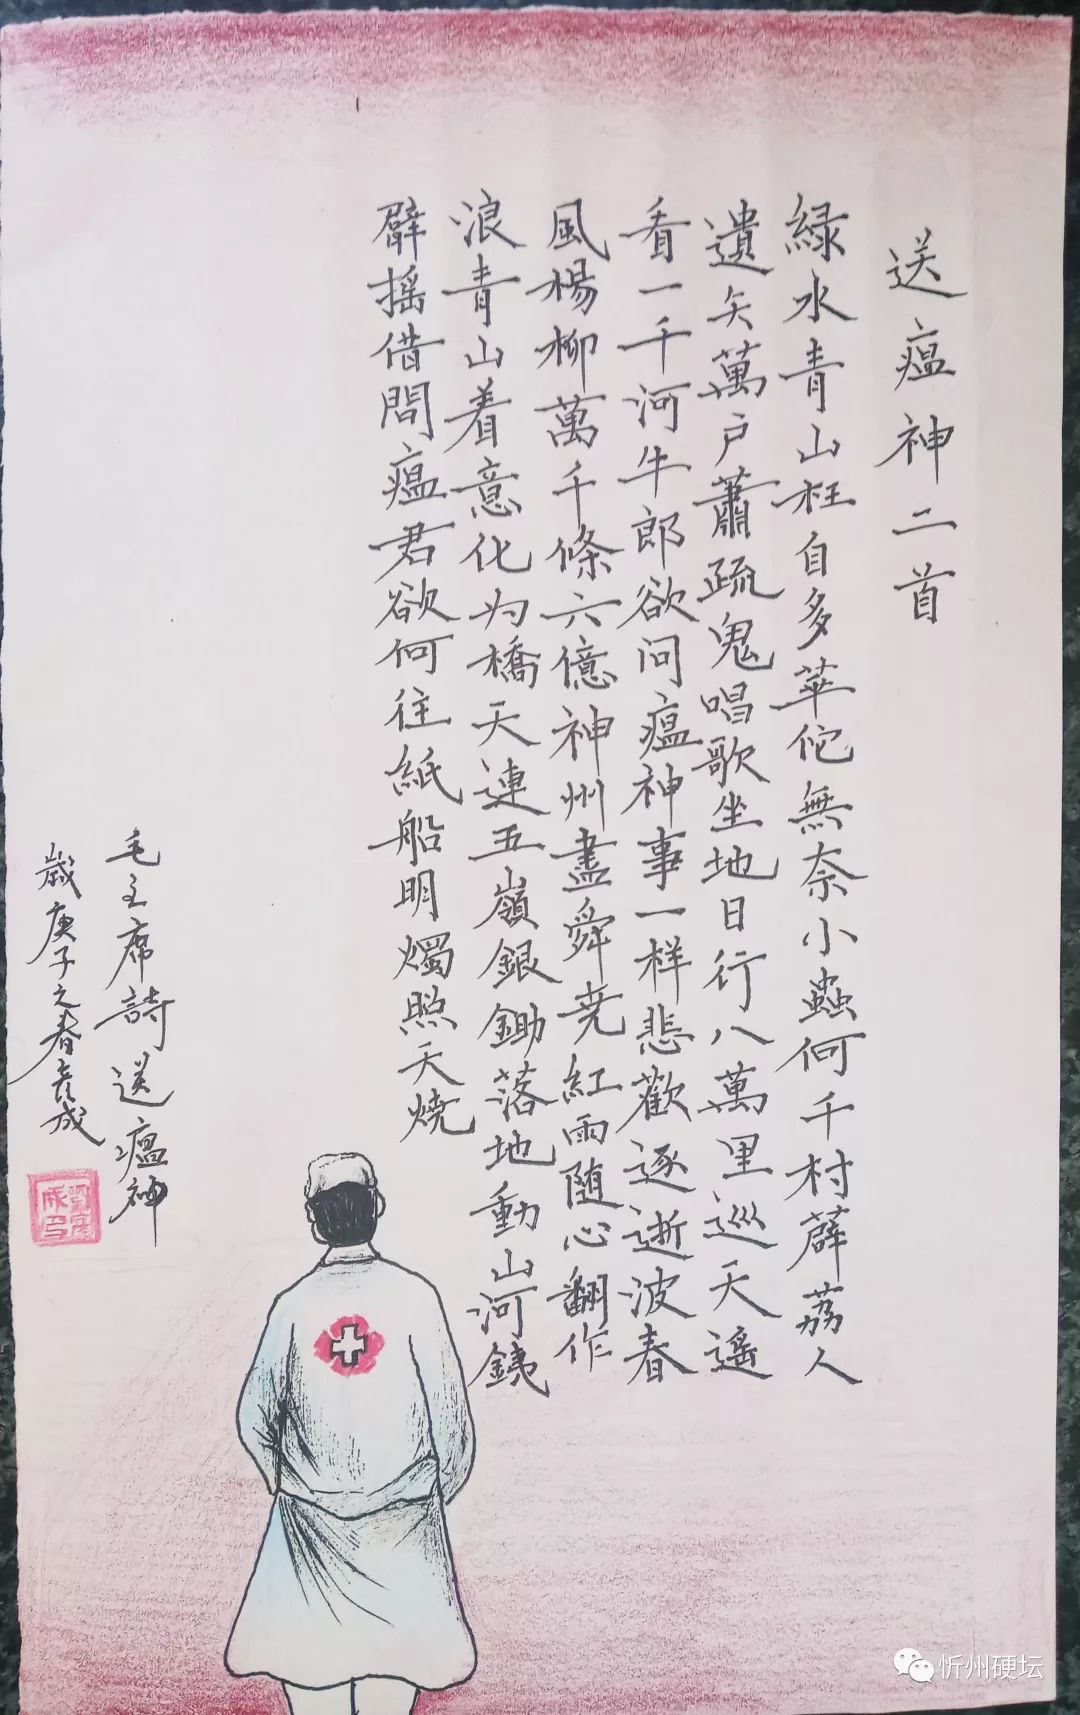 送瘟神二首
緑水青山枉自多華佗無奈小蟲何千村薜荔人
遺矢萬户蕭疏鬼唱歌坐地日行八萬里巡天遥
看一千河牛郎欲问瘟神事一样悲歡逐逝波春
風楊柳萬千條六億神州盡舜尭紅雨随心翻作
浪青山着意化为橋天連五嶺銀鋤落地動山河鐵
臂摇借問瘟君欲何往紙船明燭照天燒
毛主席詩送瘟神
歲庚子之春 成
忻州硬坛